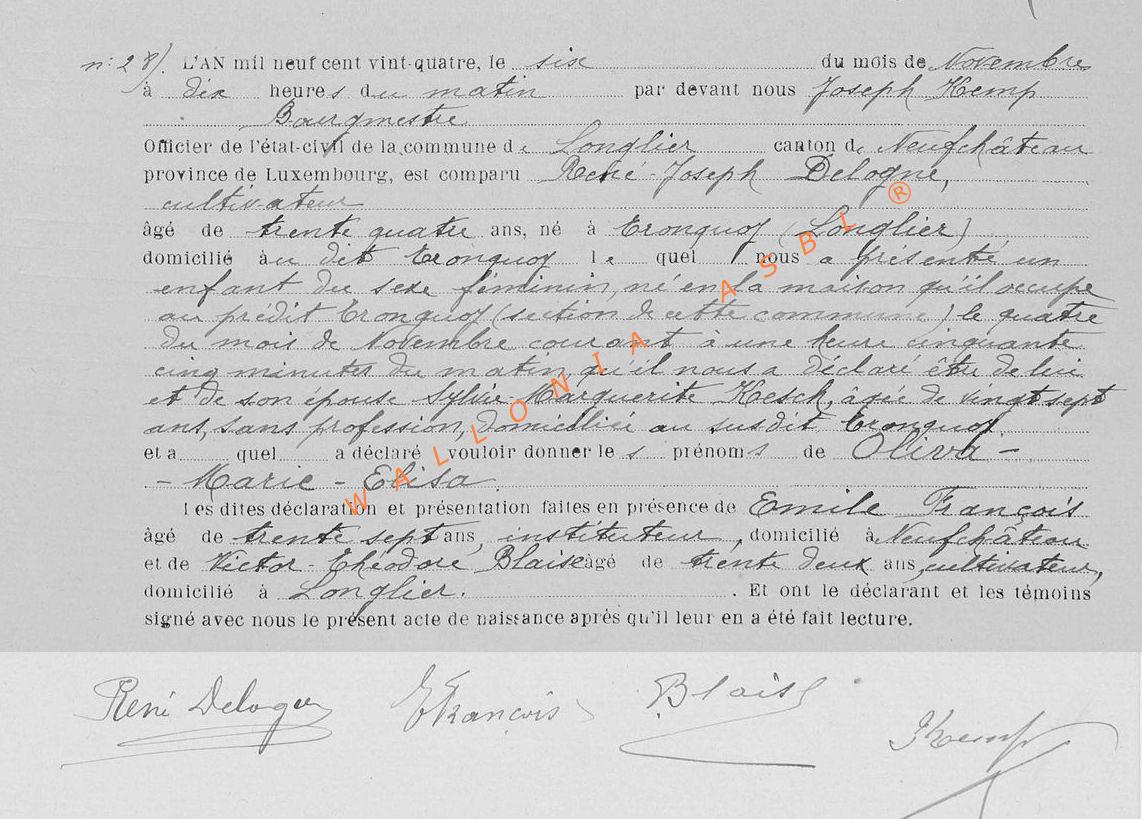 n: 28/. L'AN mil neuf cent vint-quatre, le six du mois de Novembre
à dix heures du matin par devant nous Joseph Kemp
Bourgmestre
Officier de l'état-civil de la commune de Longlier canton de Neufchâteau
province de Luxembourg, est comparu René-Joseph Delogne,
cultivateur
âgé de trente quatre ans, né à Tronquoy (Longlier)
domicilié au dit Tronquoy le quel nous a présenté un
enfant du sexe féminin, né en la maison qu'il occupe
au prédit Tronquoy (section de cette commune) le quatre
du mois de Novembre courant à une heure cinquante
cinq minutes du matin, qu'il nous a déclaré être de lui
et de son épouse Sylvie-Marguerite Kesch, âgée de vingt sept
ans, sans profession, domiciliée au susdit Tronquoy.
et a quel a déclaré vouloir donner les prénoms de Oliva -
- Marie - Elisa.
Les dites déclaration et présentation faites en présence de Emile François
âgé de trente sept ans, instituteur, domicilié à Neufchâteau
et de Victor-Théodore Blaise âgé de trente deux ans, cultivateur,
domicilié à Longlier. . Et ont le déclarant et les témoins
signé avec nous le présent acte de naissance après qu'il leur en a été fait lecture.
WALLONIA ASBL ®
René Delogne EFrançois Blaise JKemp